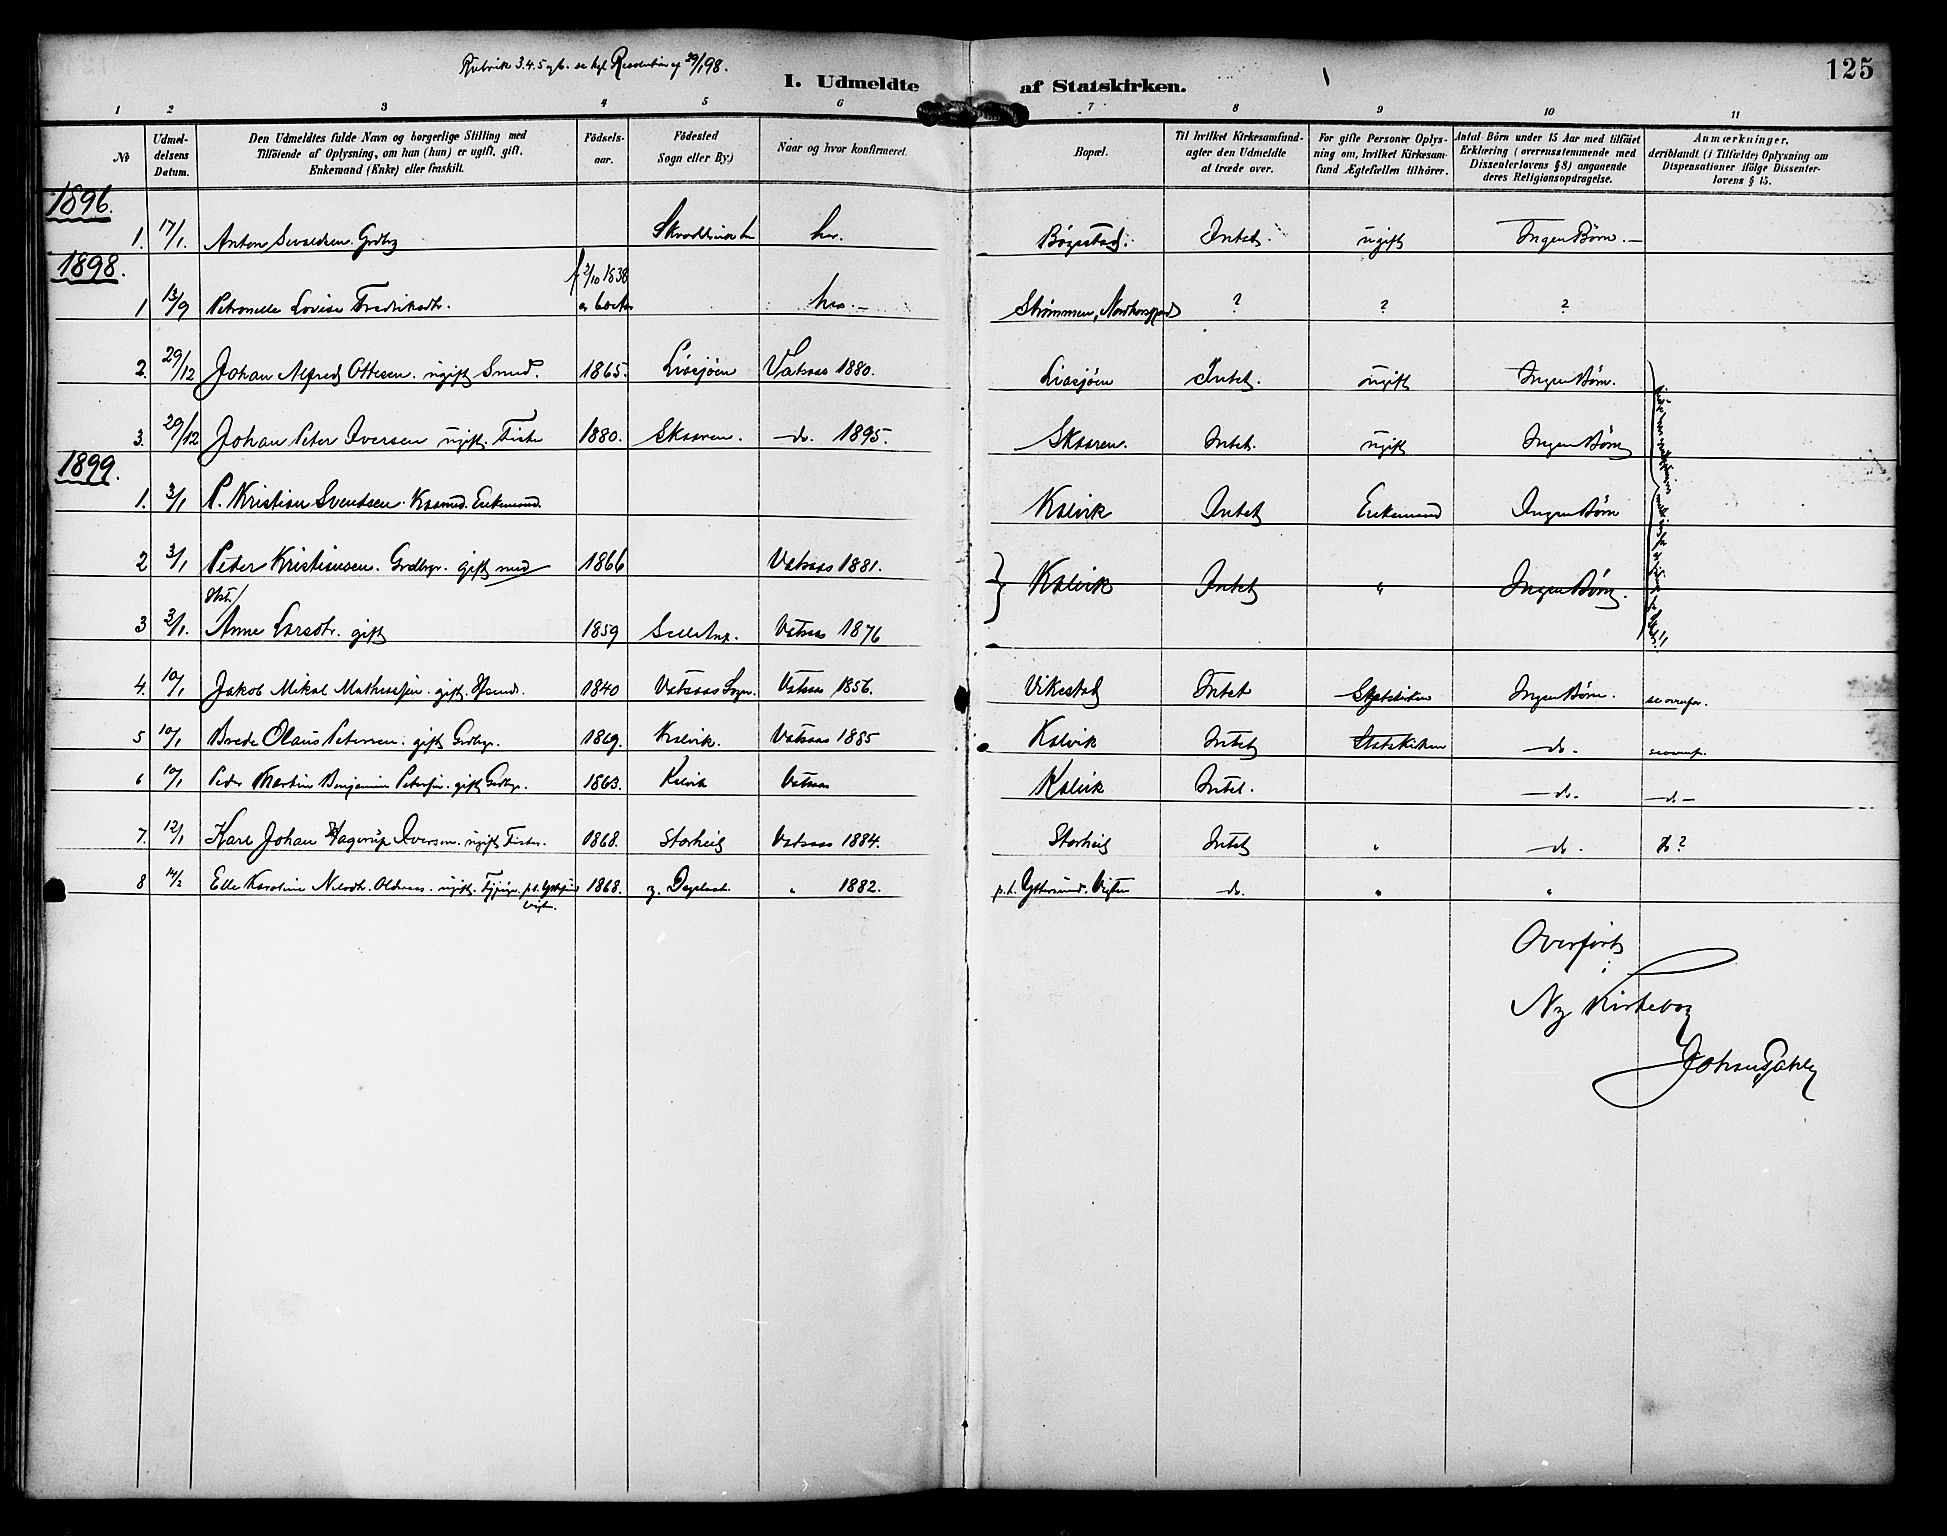 Rubrik 3.4.5 og 6. se kgl. Resolution af 29/1 98.
125
I. Udmeldte af Statskirken.
1 2 3 4 5 6 7 8 9 10 11
No
Udmeldelsens Datum.
Den Udmeldtes fulde Navn og borgerlige Stilling med
Tilföiende af Oplysning, om han (hun) er ugift, gift.
Enkemand (Enke) eller fraskilt.
Födselsaar.
Födested
Sogn eller By)
Naar og hvor konfirmeret.
Bopæl.
Til hvilket Kirkesamfund-
agter den Udmeldte
at træde over.
For gifte Personer Oplys-
ning om, hvilket Kirkesam-
fund Ægtefællen tilhörer.
Antal Börn under 15 Aar med tilföiet
Erklæring (overensstemmende med
Dissenterlovens § 8) angaaende
deres Religionsopdragelse.
Anmærkninger,
deriblandt (i Tilfælde) Oplysning om
Dispensationer ifölge Dissenter-
lovens § 15.
1896.
1. 17/1. Anton Sivaldsen. Grdbrg her. Bögestad. Intet. ugift Ingen Börn. —
1898.
f 2/10 1838
1 13/9 Petronelle Lovise Fredriksdtr. her. — Strömmen, ? ? ?
2. 29/12 Johan Alfred Ottesen. ugift Smed. 1865. Liasjöen Vatsaas 1880. Liasjöen Intet. ugift Ingen Börn.
3. 29/12 Johan Peter Iversen ugift. Fisker 1880. Skaaren. — do. 1895. Skaaren. Intet. ugift Ingen Börn
1899.
1. 3/1 P. Kristian Svendsen. Enkemand. Kalvik Intet Enkemand Ingen Börn
2 3/1 Peder Kristiansen. Grdbgr. gift med 1866 Vatsaas 1881. Kalvik Intet " Ingen Börn.
Hst.
3 3/1. Anne Larsdtr. gift 1859 Vatsaas 1876
4. 10/1 Jakob Mikal Mathiassen. gift. Husmd. 1840 Vatsaas Sogn. Vatsaas 1856. Vikestad Intet Statskirken Ingen Börn. se ovenfor.
5 10/1 Brede Olaus Petersen. gift Grdbgr. 1869. Kalvik. Vatsaas 1885 Kalvik Intet Statskirken — do. se ovenf.
6 10/1 Peder Martin Benjamin Petersen. gift Grdbgr. 1863. Kalvik Vatsaas Kalvik Intet. — do. — do —
7. 12/1 Karl Johan Hagerup Iversen. ugift Fisker. 1868. Storheil Vatsaas 1884. Storheil Intet " — do. do?
8 14/2 Elle Karoline Nilsdtr. ugift. 1868. " 1882. p.t. Yttersund. Vigten — do. " "
Overfört
i
Ny Kirkebog